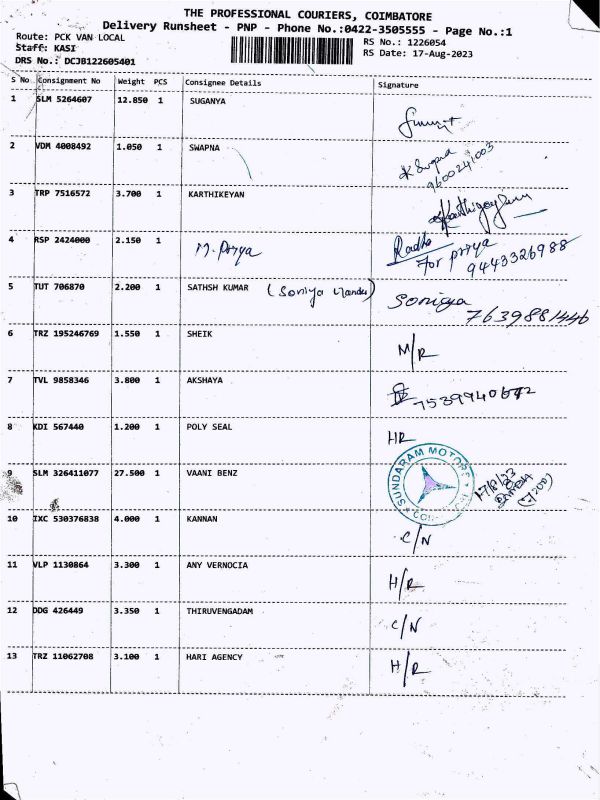 THE PROFESSIONAL COURIERS, COIMBATORE
Delivery Runsheet - PNP - Phone No.:0422-3505555 - Page No.:1
Route: PCK VAN LOCAL
RS No.: 1226054
Staff: KASI
RS Date: 17-Aug-2023
DRS No.: DCJB122605401
S No Consignment No Weight PCS Consignee Details Signature
1 SLM 5264607 12.850 1 SUGANYA
2 VDM 4008492 1.050 1 SWAPNA
K Swapna
9600241003
3 TRP 7516572 3.700 1 KARTHIKEYAN
4 RSP 2424000 2.150 1 M. Priya
Radha
For priya
9443326988
5 TUT 706870 2.200 1 SATHSH KUMAR (Soniya
Soniya
7639881446
6 TRZ 195246769 1.550 1 SHEIK M/R
7 TVL 9858346 3.800 1 AKSHAYA
8 KDI 567440 1.200 1 POLY SEAL HR
SUNDARAM MOTORS
9 SLM 326411077 27.500 1 VAANI BENZ 17/8/23
10 IXC 530376838 4.000 1 KANNAN C/N
11 VLP 1130864 3.300 1 ANY VERNOCIA H/R
12 DDG 426449 3.350 1 THIRUVENGADAM C/N
13 TRZ 11062708 3.100 1 HARI AGENCY H/R